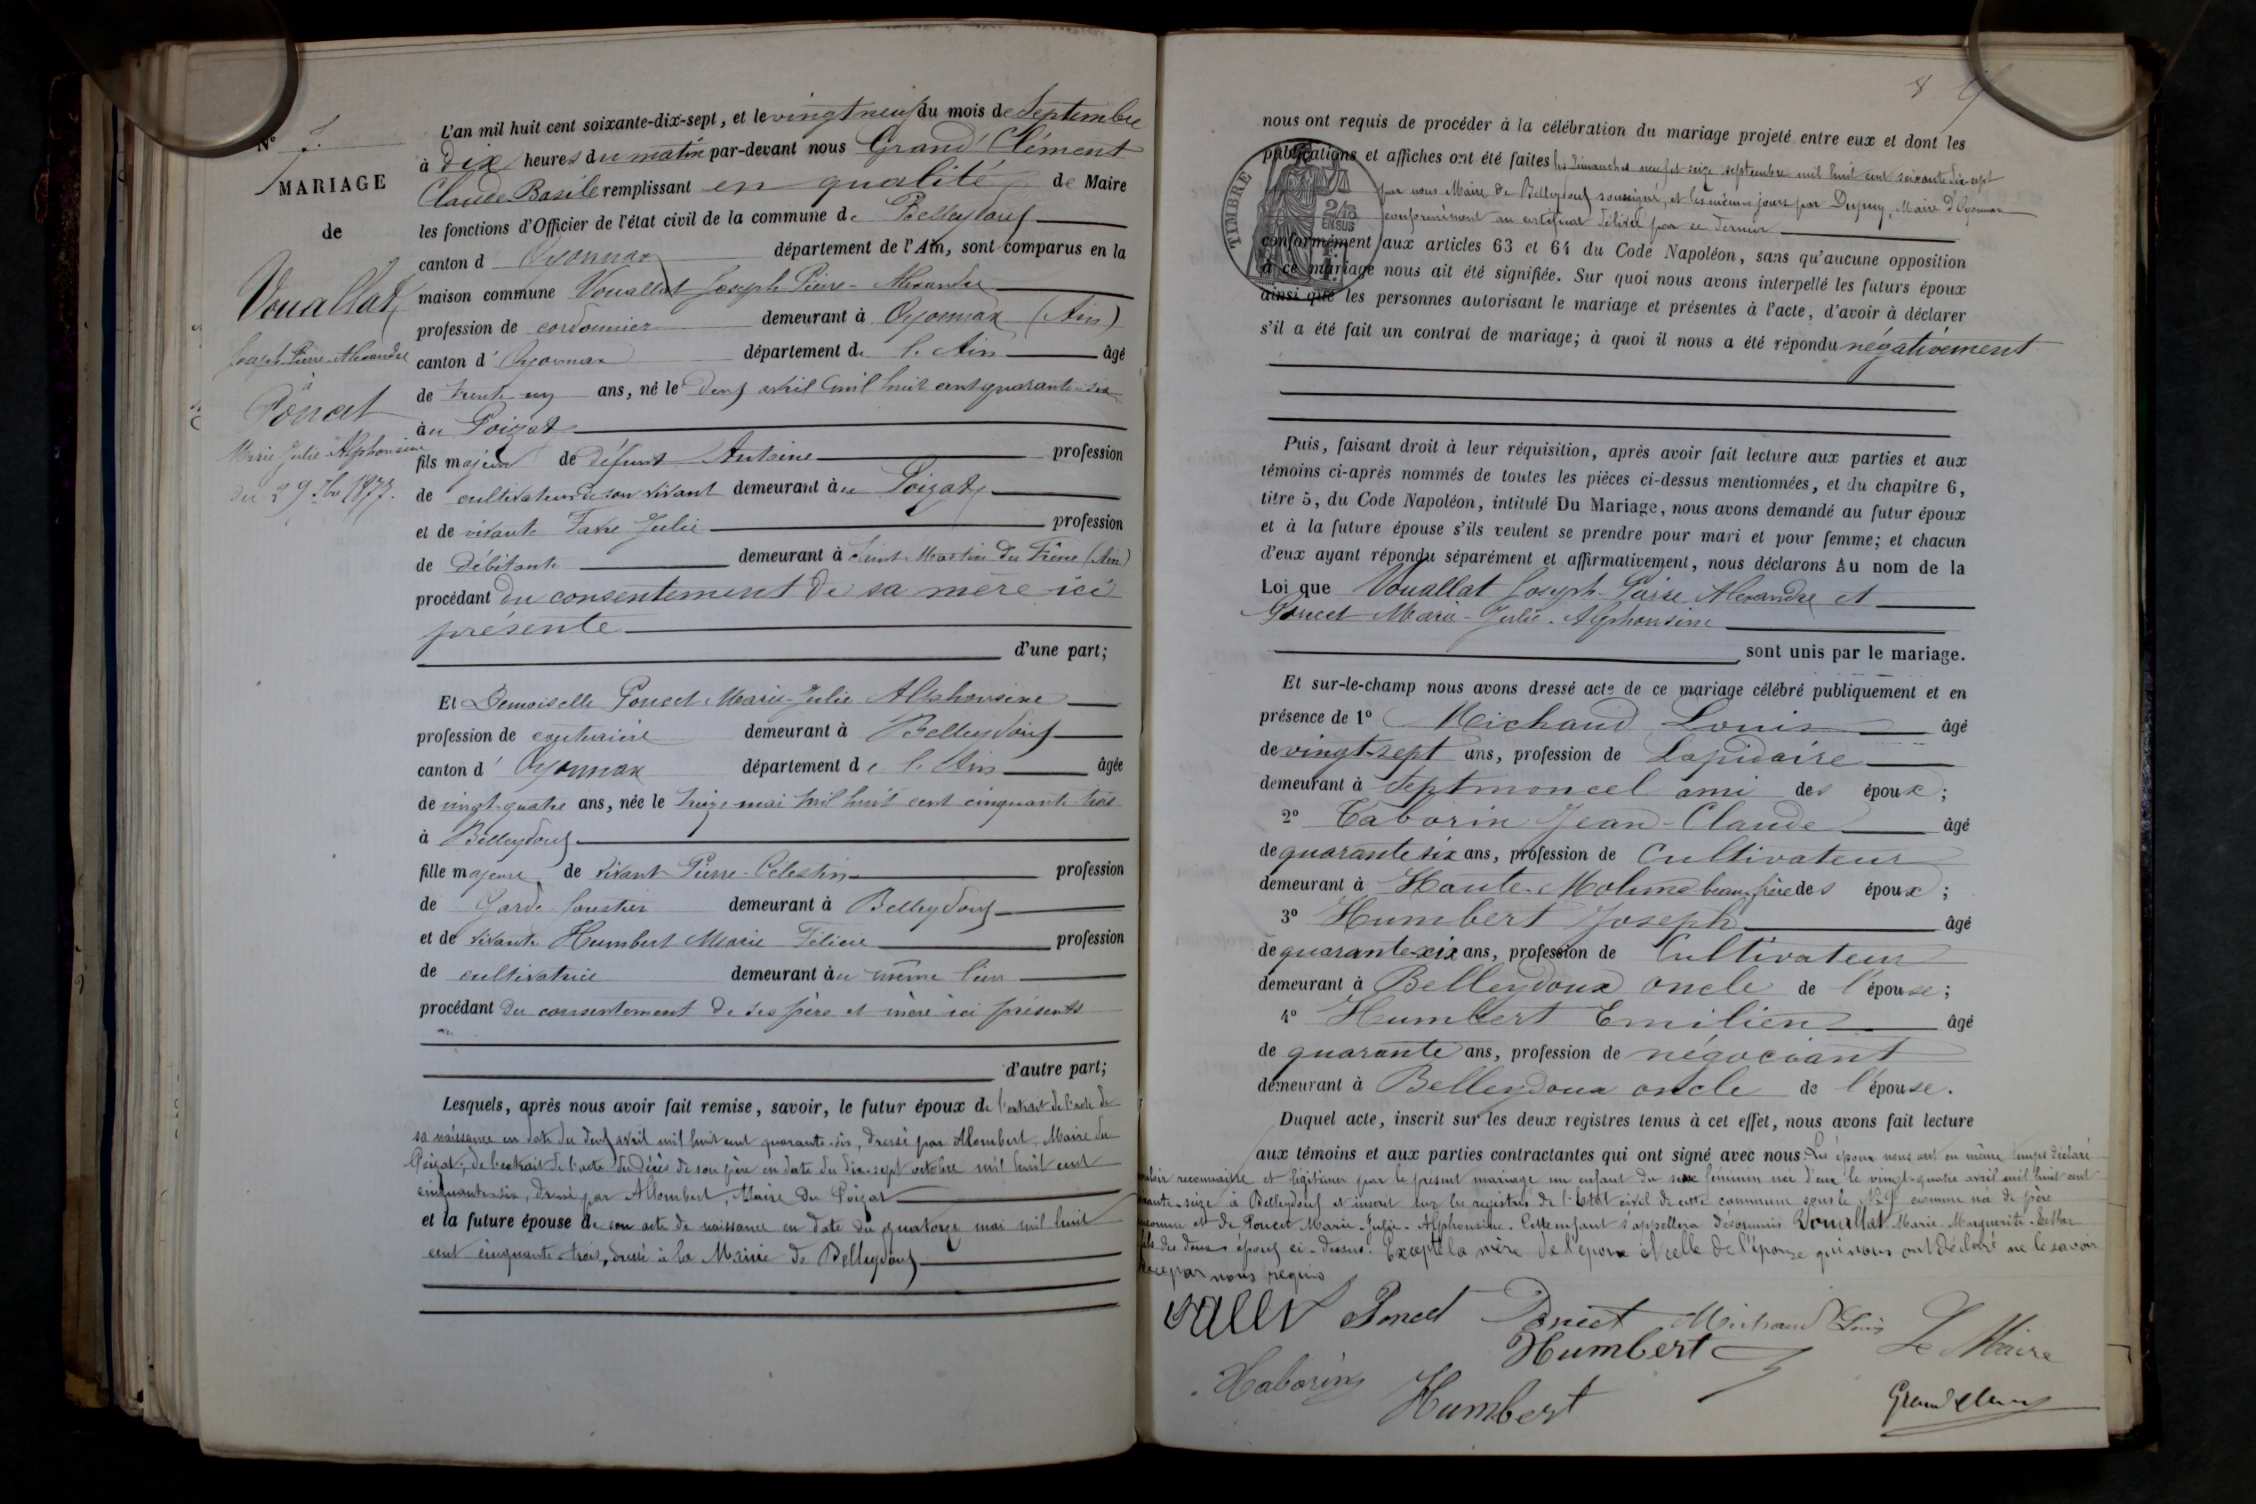 N° 7.
MARIAGE
de
Vouallat
Joseph Pierre-Alexandre
&
Poncet
Marie Julie Alphonsine
du 29 7bre 1877.
L'an mil huit cent soixante-dix-sept, et le vingt neuf du mois de Septembre
à dix heures du matin par-devant nous Grand Clément
Claude Basile remplissant en qualité de Maire
les fonctions d'Officier de l'état civil de la commune de Belleydoux
canton d'Oyonnax département de l'Ain, sont comparus en la
maison commune Vouallat Joseph Pierre-Alexandre
profession de cordonnier demeurant à Oyonnax (Ain)
canton d'Oyonnax département de l'Ain âgé
de trente un ans, né le deux avril mil huit cent quarante-six
au Poizat
fils majeur de défunt Antoine profession
de cultivateur de son vivant demeurant au Poizat
et de vivante Favre Julie profession
de débitante demeurant à Saint-Martin du Frêne (Ain)
procédant du consentement de sa mère ici
présente
d'une part;
Et Demoiselle Poncet Marie-Julie Alphonsine
profession de couturière demeurant à Belleydoux
canton d'Oyonnax département de l'Ain âgée
de vingt-quatre ans, née le treize mai mil huit cent cinquante trois
à Belleydoux
fille majeure de vivant Pierre-Célestin profession
de Garde forestier demeurant à Belleydoux
et de vivante Humbert Marie Félicie profession
de cultivatrice demeurant au même lieu
procédant du consentement de ses père et mère ici présents
d'autre part;
Lesquels, après nous avoir fait remise, savoir, le futur époux de l'extrait de l'acte de
sa naissance en date du deux avril mil huit cent quarante-six, dressé par Allombert, Maire du
Poizat, de l'extrait de l'acte de décès de son père en date du dix-sept octobre mil huit cent
cinquante-six, dressé par Allombert, Maire du Poizat
et la future épouse de son acte de naissance en date du quatorze mai mil huit
cent cinquante-trois, dressé à la Mairie de Belleydoux
8
nous ont requis de procéder à la célébration du mariage projeté entre eux et dont les
publications et affiches ont été faites les dimanches neuf et seize septembre mil huit cent soixante dix-sept
par nous Maire de Belleydoux soussigné, et les mêmes jours par Dupuy, Maire d'Oyonnax
conformément au certificat délivré par ce dernier
TIMBRE
2/10
EN SUS
conformément aux articles 63 et 64 du Code Napoléon, sans qu'aucune opposition
à ce mariage nous ait été signifiée. Sur quoi nous avons interpellé les futurs époux
ainsi que les personnes autorisant le mariage et présentes à l'acte, d'avoir à déclarer
s'il a été fait un contrat de mariage; à quoi il nous a été répondu négativement
Puis, faisant droit à leur réquisition, après avoir fait lecture aux parties et aux
témoins ci-après nommés de toutes les pièces ci-dessus mentionnées, et du chapitre 6,
titre 5, du Code Napoléon, intitulé Du Mariage, nous avons demandé au futur époux
et à la future épouse s'ils veulent se prendre pour mari et pour femme; et chacun
d'eux ayant répondu séparément et affirmativement, nous déclarons Au nom de la
Loi que Vouallat Joseph-Pierre Alexandre et
Poncet Marie-Julie-Alphonsine
sont unis par le mariage.
Et sur-le-champ nous avons dressé acte de ce mariage célébré publiquement et en
présence de 1° Michaud Louis âgé
de vingt-sept ans, profession de Lapidaire
demeurant à Septmoncel ami des époux;
2° Taborin Jean-Claude âgé
de quarante six ans, profession de Cultivateur
demeurant à Haute-Molune beau-frère des époux;
3° Humbert Joseph âgé
de quarante-six ans, profession de Cultivateur
demeurant à Belleydoux oncle de l'épouse;
4° Humbert Emilien âgé
de quarante ans, profession de négociant
demeurant à Belleydoux oncle de l'épouse.
Duquel acte, inscrit sur les deux registres tenus à cet effet, nous avons fait lecture
aux témoins et aux parties contractantes qui ont signé avec nous. Les époux nous ont en même temps déclaré
reconnaître et légitimer par le présent mariage un enfant du sexe féminin née d'eux le vingt-quatre avril mil huit cent
seize à Belleydoux et inscrit sur les registres de l'Etat civil de cette commune sous le N° 9 comme née de père
et de Poncet Marie-Julie-Alphonsine. Cette enfant s'appellera désormais Vouallat Marie-Marguerite-Esther
des deux époux ci-dessus. Excepté la mère de l'époux et celle de l'épouse qui nous ont déclaré ne le savoir
par nous requis
Poncet Poncet Michaud Louis
Humbert Le Maire
Taborin Humbert Grand Clément